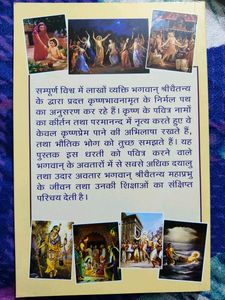 सम्पूर्ण विश्व में लाखों व्यक्ति भगवान् श्रीचैतन्य
के द्वारा प्रदत्त कृष्णभावनामृत के निर्मल पथ
का अनुसरण कर रहे हैं। कृष्ण के पवित्र नामों
का कीर्तन तथा परमानन्द में नृत्य करते हुए वे
केवल कृष्णप्रेम पाने की अभिलाषा रखते हैं,
तथा भौतिक भोग को तुच्छ समझते हैं। यह
पुस्तक इस धरती को पवित्र करने वाले
भगवान् के अवतारों में से सबसे अधिक दयालु
तथा उदार अवतार भगवान् श्रीचैतन्य महाप्रभु
के जीवन तथा उनकी शिक्षाओं का संक्षिप्त
परिचय देती है।